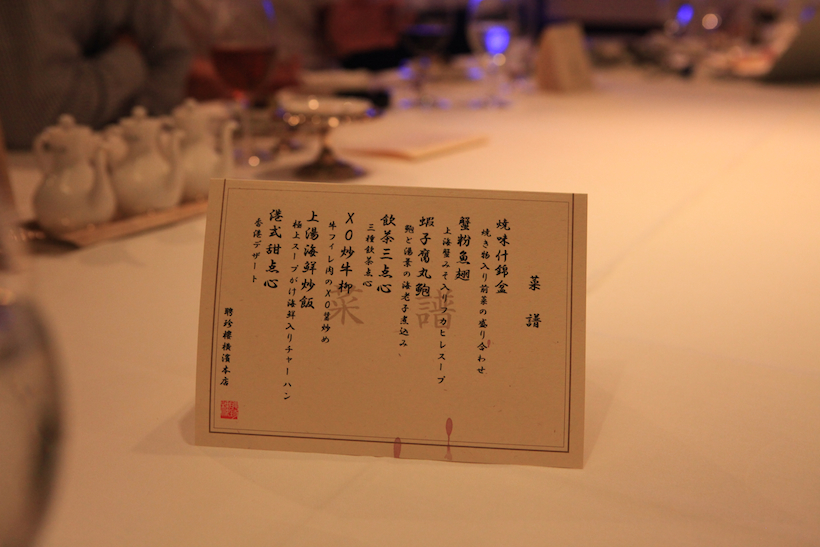 菜譜
焼味什錦盒
焼き物入り前菜の盛り合わせ
蟹粉魚翅
上海蟹みそ入りフカヒレスープ
蝦子腐丸鮑
鮑と湯葉の海老子煮込み
飲茶三点心
三種飲茶点心
XO炒牛柳
牛フィレ肉のXO醤炒め
上湯海鮮炒飯
極上スープがけ海鮮入りチャーハン
港式甜点心
香港デザート
聘珍樓横濱本店
菜譜